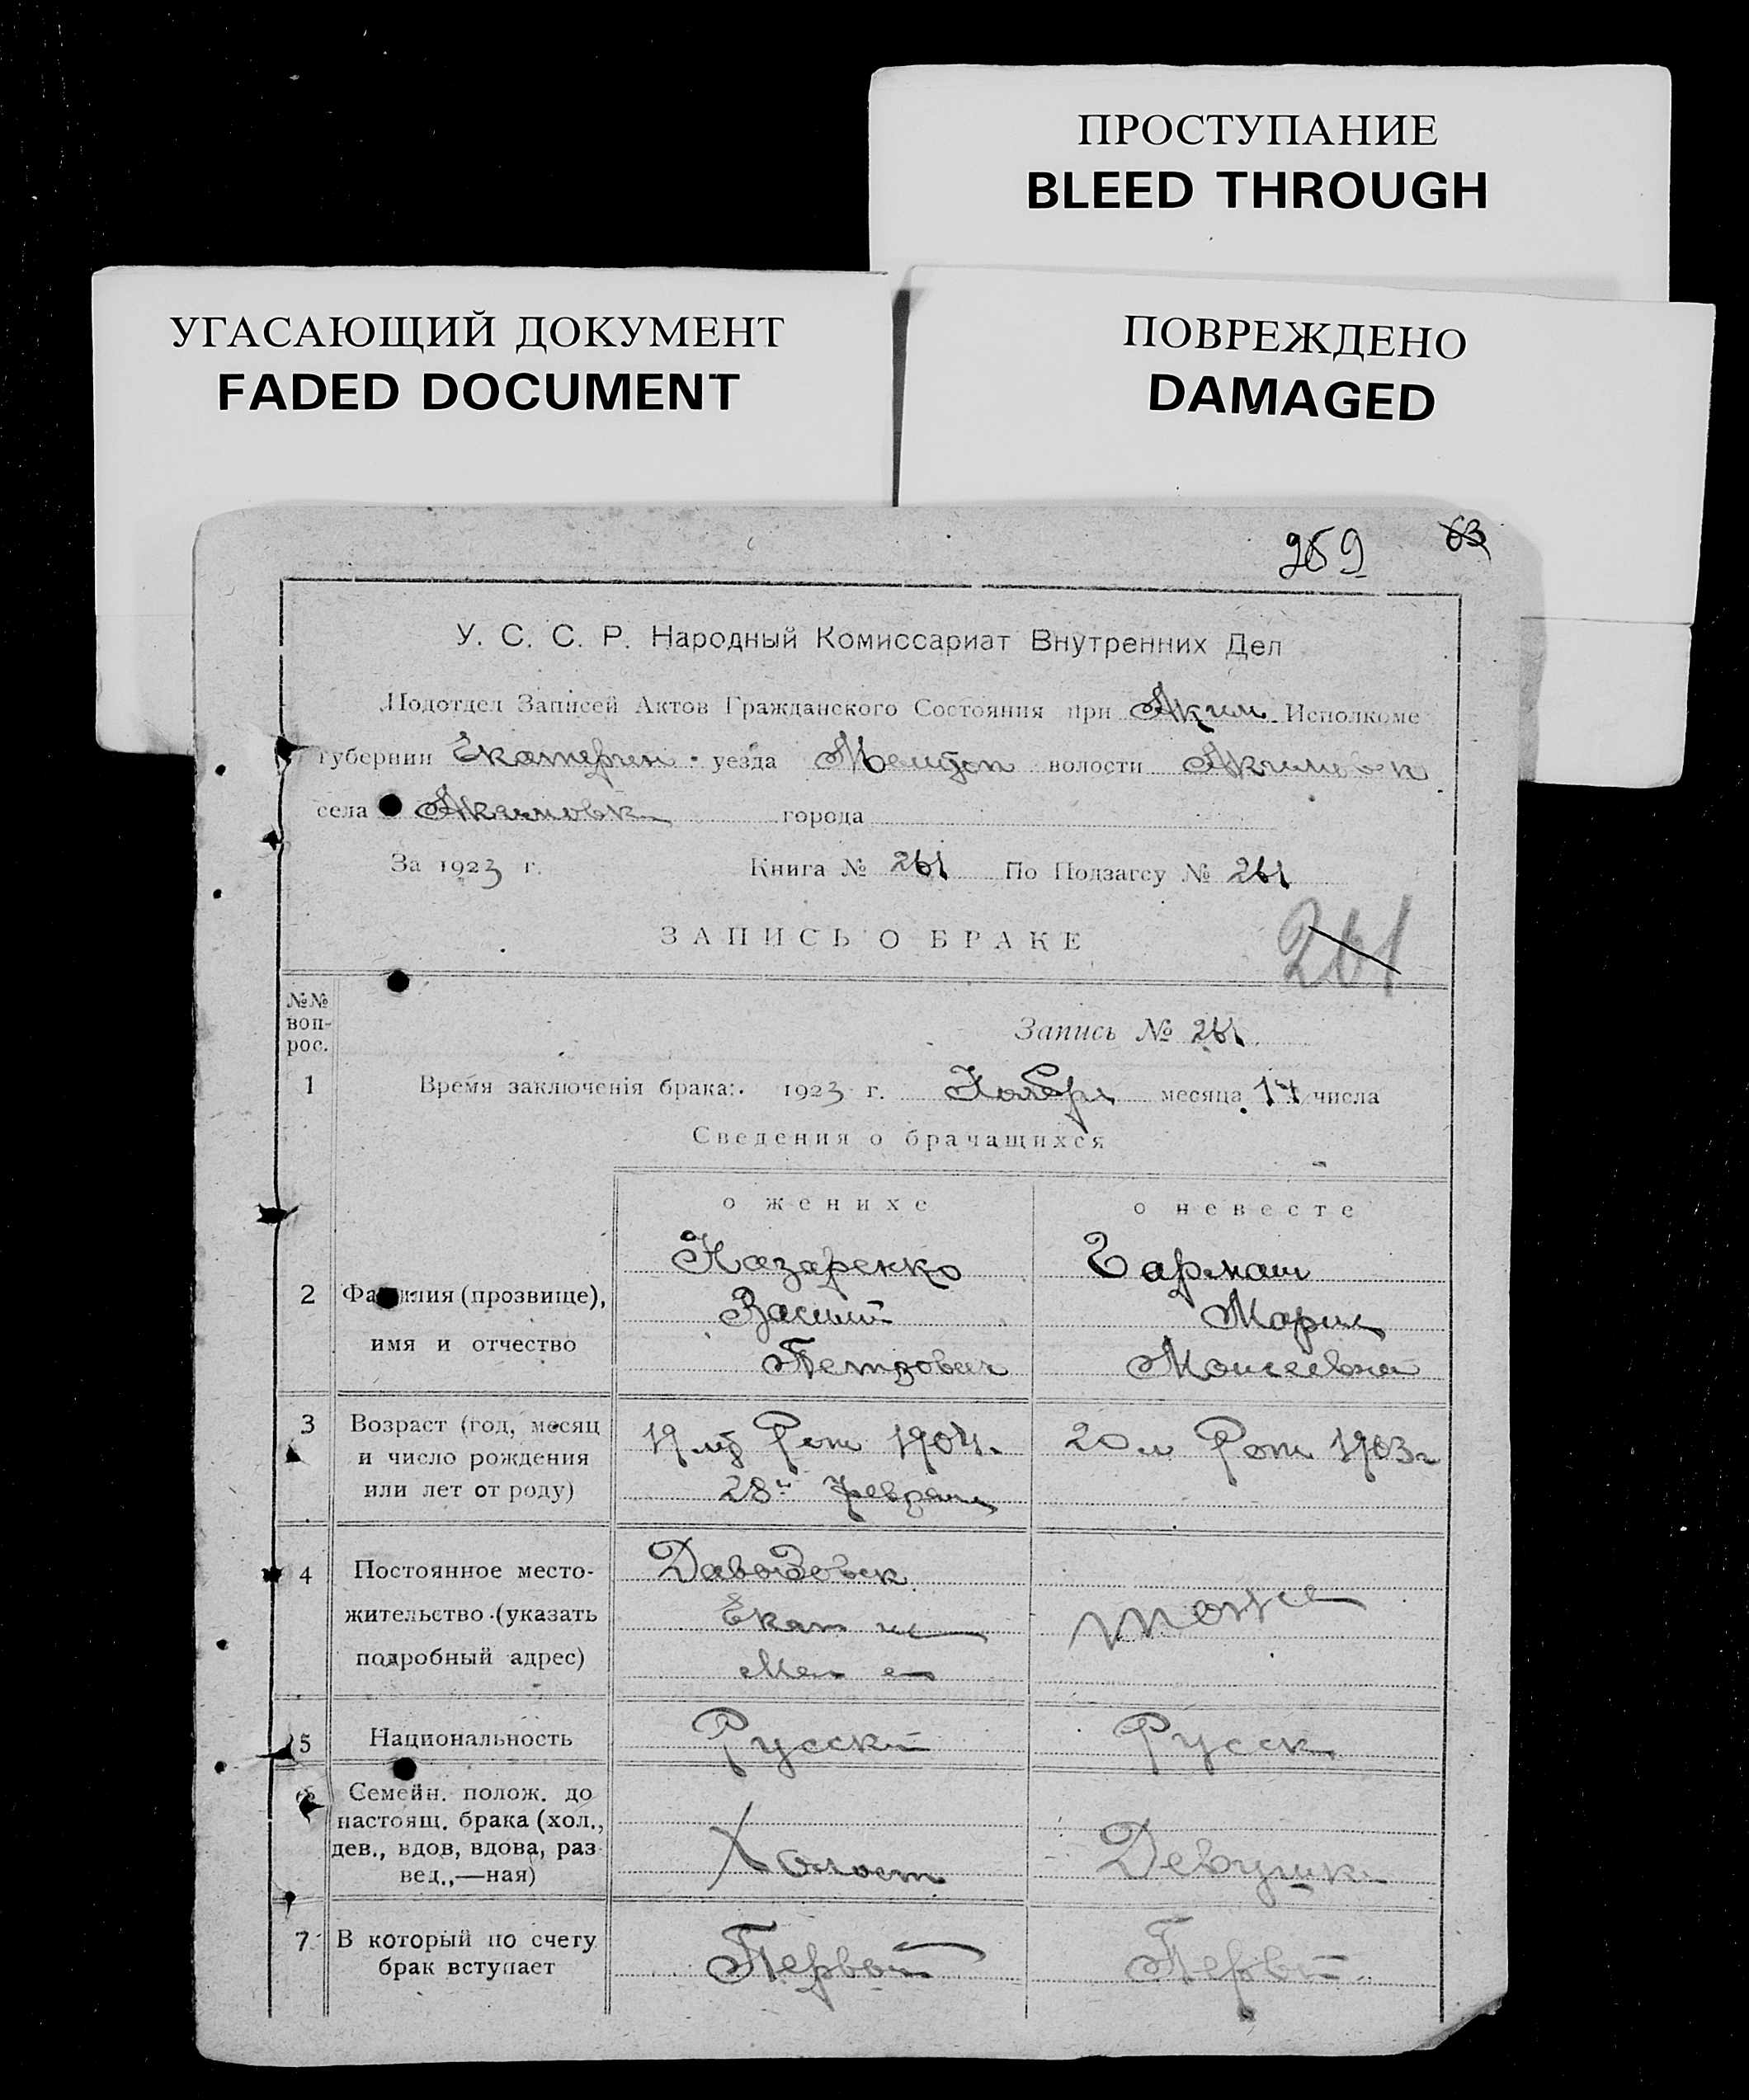 ПРОСТУПАНИЕ
BLEED THROUGH
УГАСАЮЩИЙ ДОКУМЕНТ
FADED DOCUMENT
ПОВРЕЖДЕНО
DAMAGED
259 63
У. С. С. Р. Народный Комиссариат Внутренних Дел
Подотдел Записей Актов Гражданского Состояния при Аким Исполкоме
губернии Екатерин уезда Мелитоп волости Акимовск
села Акимовк города
За 1923 г. Книга № 261 По Подзагсу № 261
ЗАПИСЬ О БРАКЕ
261
№№ воп-рос.
Запись № 261
1 Время заключенія брака: 1923 г. Ноября месяца 14 числа
Сведения о брачащихся
о женихе о невесте
Назаренко Гармаш
2 Фамилия (прозвище), Василий Мария
имя и отчество Петрович Моисеевна
3 Возраст (год, месяц 19 Рот 1904 20 Рот 1903г
и число рождения
или лет от роду) 28 февраля
4 Постоянное место- Давыдовск
жительство (указать Екат тоже
подробный адрес) Мел
5 Национальность Русский Русск
6 Семейн. полож. до
настоящ. брака (хол.,
дев., вдов, вдова, раз Холост Девушк
вед.,—ная)
7 В который по счету
брак вступает Первый Первый